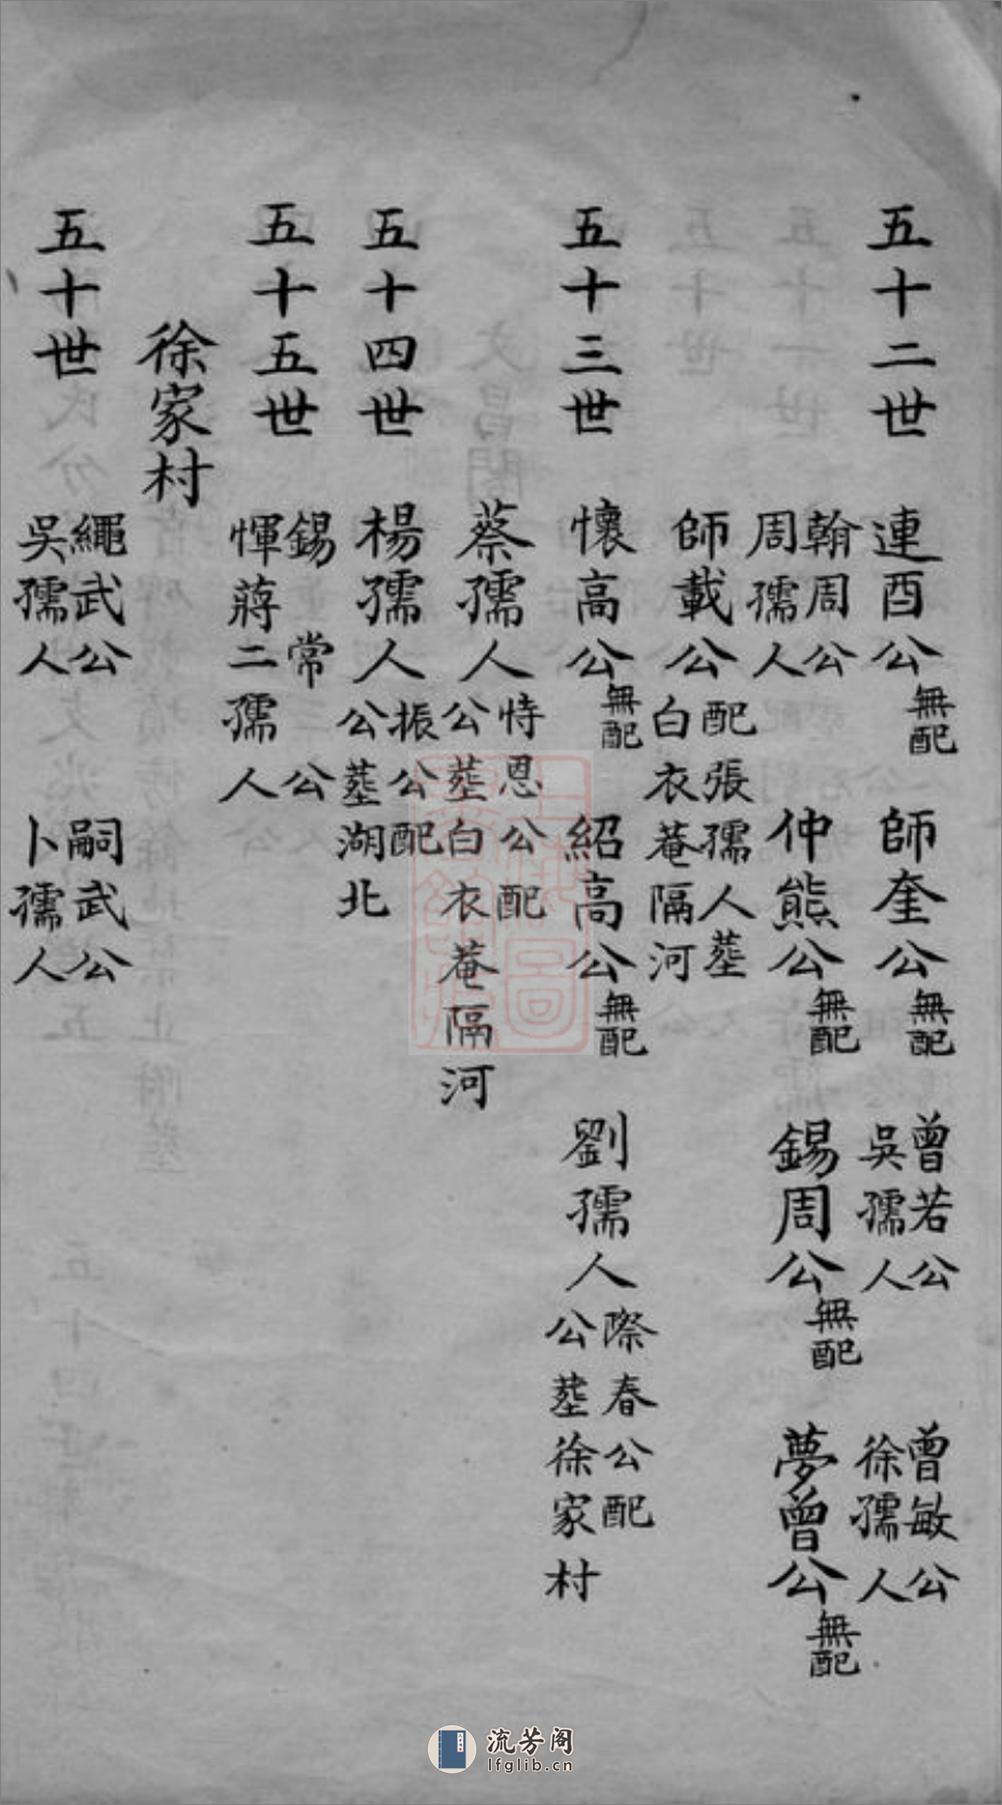 五十二世 連酉公 無配 師奎公 無配 曾若公 吳孺人 曾敏公 徐孺人
翰周公 周孺人 仲熊公 無配 錫周公 無配 夢曾公 無配
師載公 配張孺人塟白衣菴隔河
五十三世 懷高公 無配 紹高公 無配 劉孺人 際春公配公塟徐家村
蔡孺人 恃恩公配公塟白衣菴隔河
五十四世 楊孺人 振公配公塟湖北
五十五世 錫常公 惲蔣二孺人
徐家村
五十世 繩武公 吳孺人 嗣武公 卜孺人
流芳阁
lfglib.cn